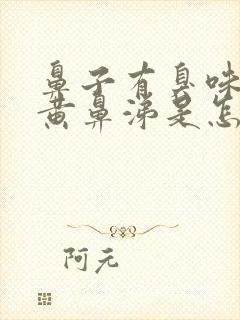 鼻子有臭味
黄鼻涕是怎
阿元